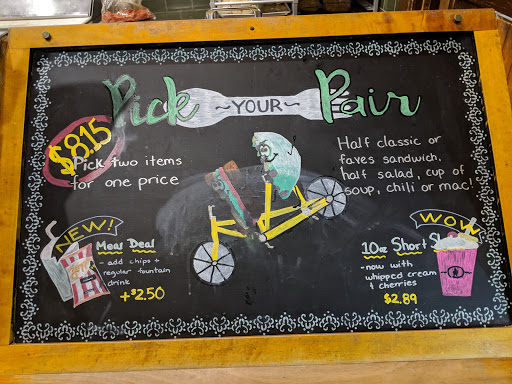 Pick YOUR Pair
$8.15
Pick two items
for one price
Half classic or
faves sandwich,
half salad, cup of
soup, chili or mac!
NEW!
Meal Deal
- add chips +
regular fountain
drink
+$2.50
WOW
10oz Short
-now with
whipped cream
+ cherries
$2.89